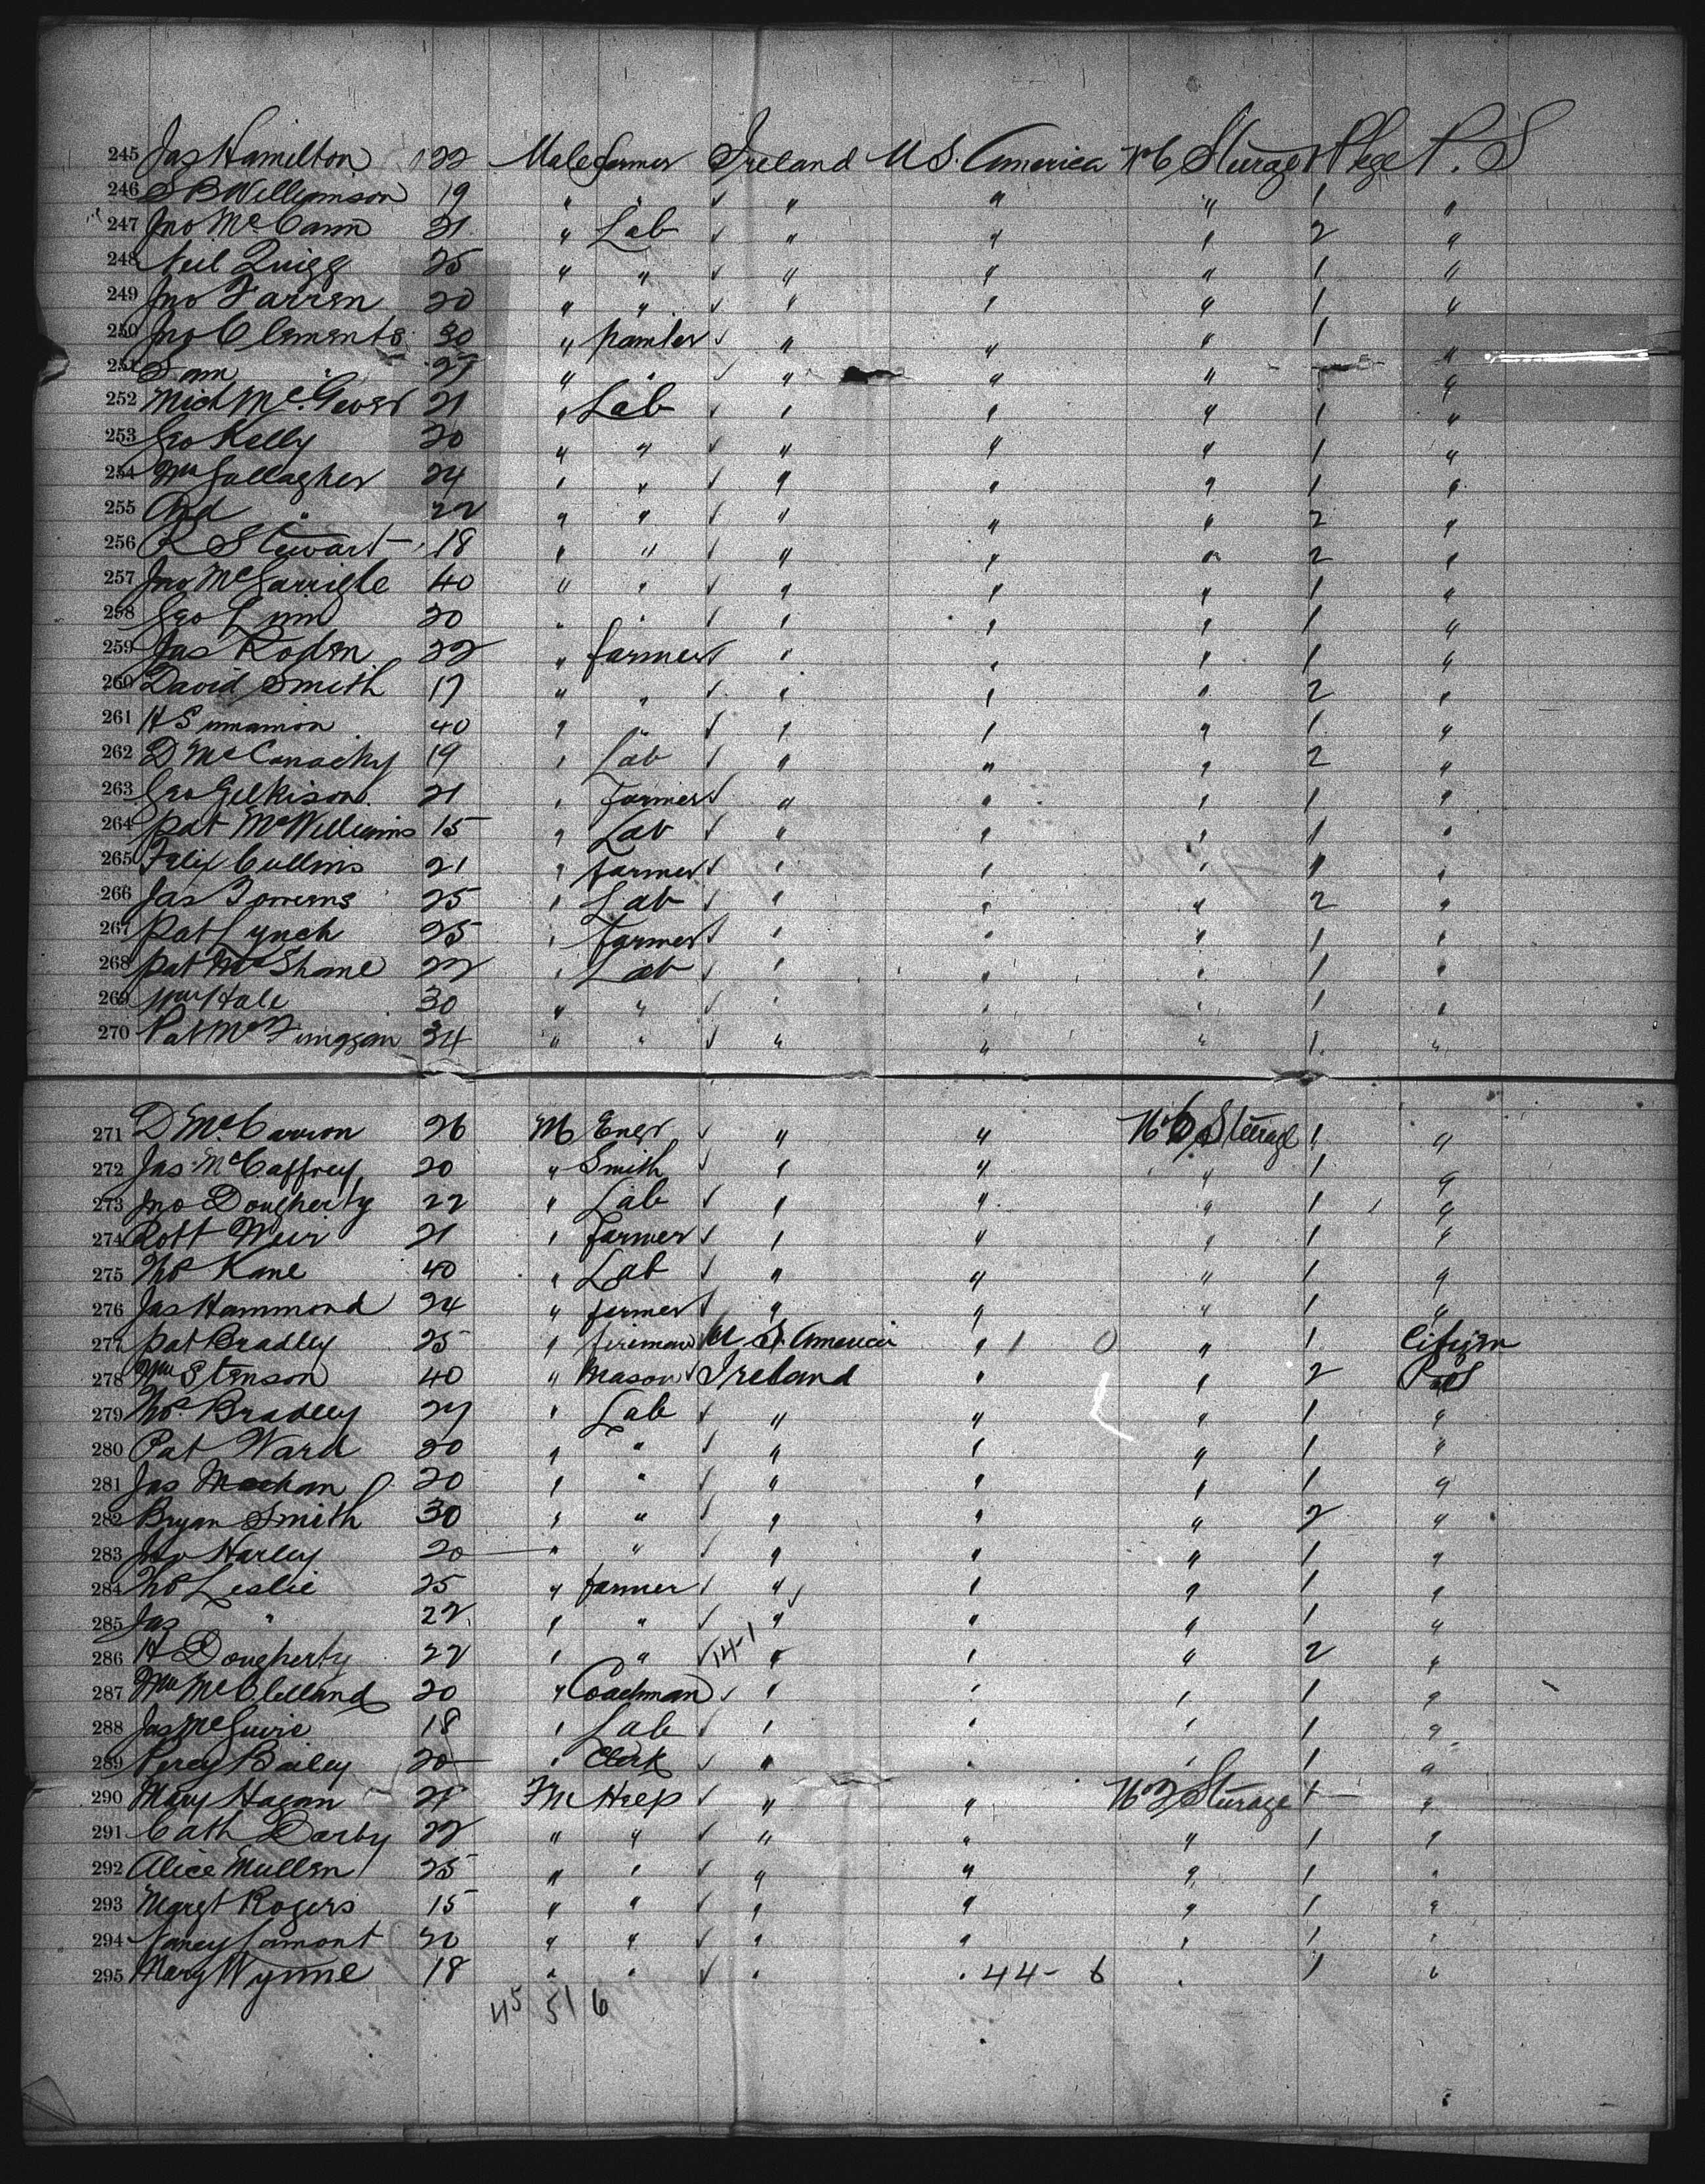 245 Jas Hamilton 22 Male farmer Ireland U S. America No 6 Steerage 1 Pkge P. S
246 S B Williamson 19 " " ✓ " " " 1 "
247 Jno McCann 21 " Lab ✓ " " " 2 "
248 Neil Quigg 25 " " ✓ " " " 1 "
249 Jno Farren 20 " " ✓ " " " 1 "
250 Jno Clements 30 " painter ✓ " " " 1 "
251 Sam " 27 " " ✓ " " " "
252 Mich Mc 21 " Lab ✓ " " " 1 "
253 Geo Kelly 20 " " ✓ " " " 1 "
254 Wm Gallagher 24 " " ✓ " " " 1 "
255 And " 22 " " ✓ " " " 2 "
256 R Stewart 18 " " ✓ " " " 2 "
257 Jno McGarrigle 40 " " ✓ " " " 1 "
258 Geo Lynn 20 " " ✓ " " " 1 "
259 Jas Roden 22 " farmer ✓ " " " 1 "
260 David Smith 17 " " ✓ " " " 2 "
261 H Sinnamon 40 " " ✓ " " " 1 "
262 D McConachy 19 " Lab ✓ " " " 2 "
263 Geo Gilkison 21 " Farmer ✓ " " " 1 "
264 Pat McWilliams 15 " Lab ✓ " " " 1 "
265 Felix Cullins 21 " farmer ✓ " " " 1 "
266 Jas 25 " Lab ✓ " " " 2 "
267 Pat Lynch 25 " Farmer ✓ " " " 1 "
268 Pat McShane 22 " Lab ✓ " " " 1 "
269 Wm Hale 30 " " ✓ " " " 1 "
270 Pat 34 " " ✓ " " " 1 "
271 D McCarron 26 M Engr ✓ " " No 6 Steerage 1 "
272 Jas McCaffrey 20 " Smith ✓ " " " 1 "
273 Jno Dougherty 22 " Lab ✓ " " " 1 "
274 Robt Weir 21 " Farmer ✓ " " " 1 "
275 Tho Kane 40 " Lab ✓ " " " 1 "
276 Jas Hammond 24 " farmer ✓ " " " 1 "
277 Pat Bradley 25 " fireman U S. America " 1 0 " 1 Citizen
278 Wm Stenson 40 " Mason ✓ Ireland " " 2 P S
279 Tho Bradley 27 " Lab ✓ " " " 1 "
280 Pat Ward 20 " " ✓ " " " 1 "
281 Jas Meehan 20 " " ✓ " " " 1 "
282 Bryan Smith 30 " " ✓ " " " 2 "
283 Jno Harley 20 " " ✓ " " " 1 "
284 Tho Leslie 25 " farmer ✓ " " " 1 "
285 Jas " 22 " " ✓ " " " 1 "
286 H Dougherty 22 " " ✓ 14-1 " " " 2 "
287 Wm McClelland 20 " Coachman ✓ " " " 1 "
288 Jas McGuire 18 " Lab ✓ " " " 1 "
289 Percy Bailey 20 " Clerk ✓ " " " 1 "
290 Mary Hagan 27 Fm Hkep ✓ " " No 2 Steerage 1 "
291 Cath Darby 22 " " ✓ " " " 1 "
292 Alice Mullen 25 " " ✓ " " " 1 "
293 Margt Rogers 15 " " ✓ " " " 1 "
294 Nancy Lamont 20 " " ✓ " " " 1 "
295 Mary Wynne 18 " " ✓ " " 44- 6 " 1 "
45 51 6